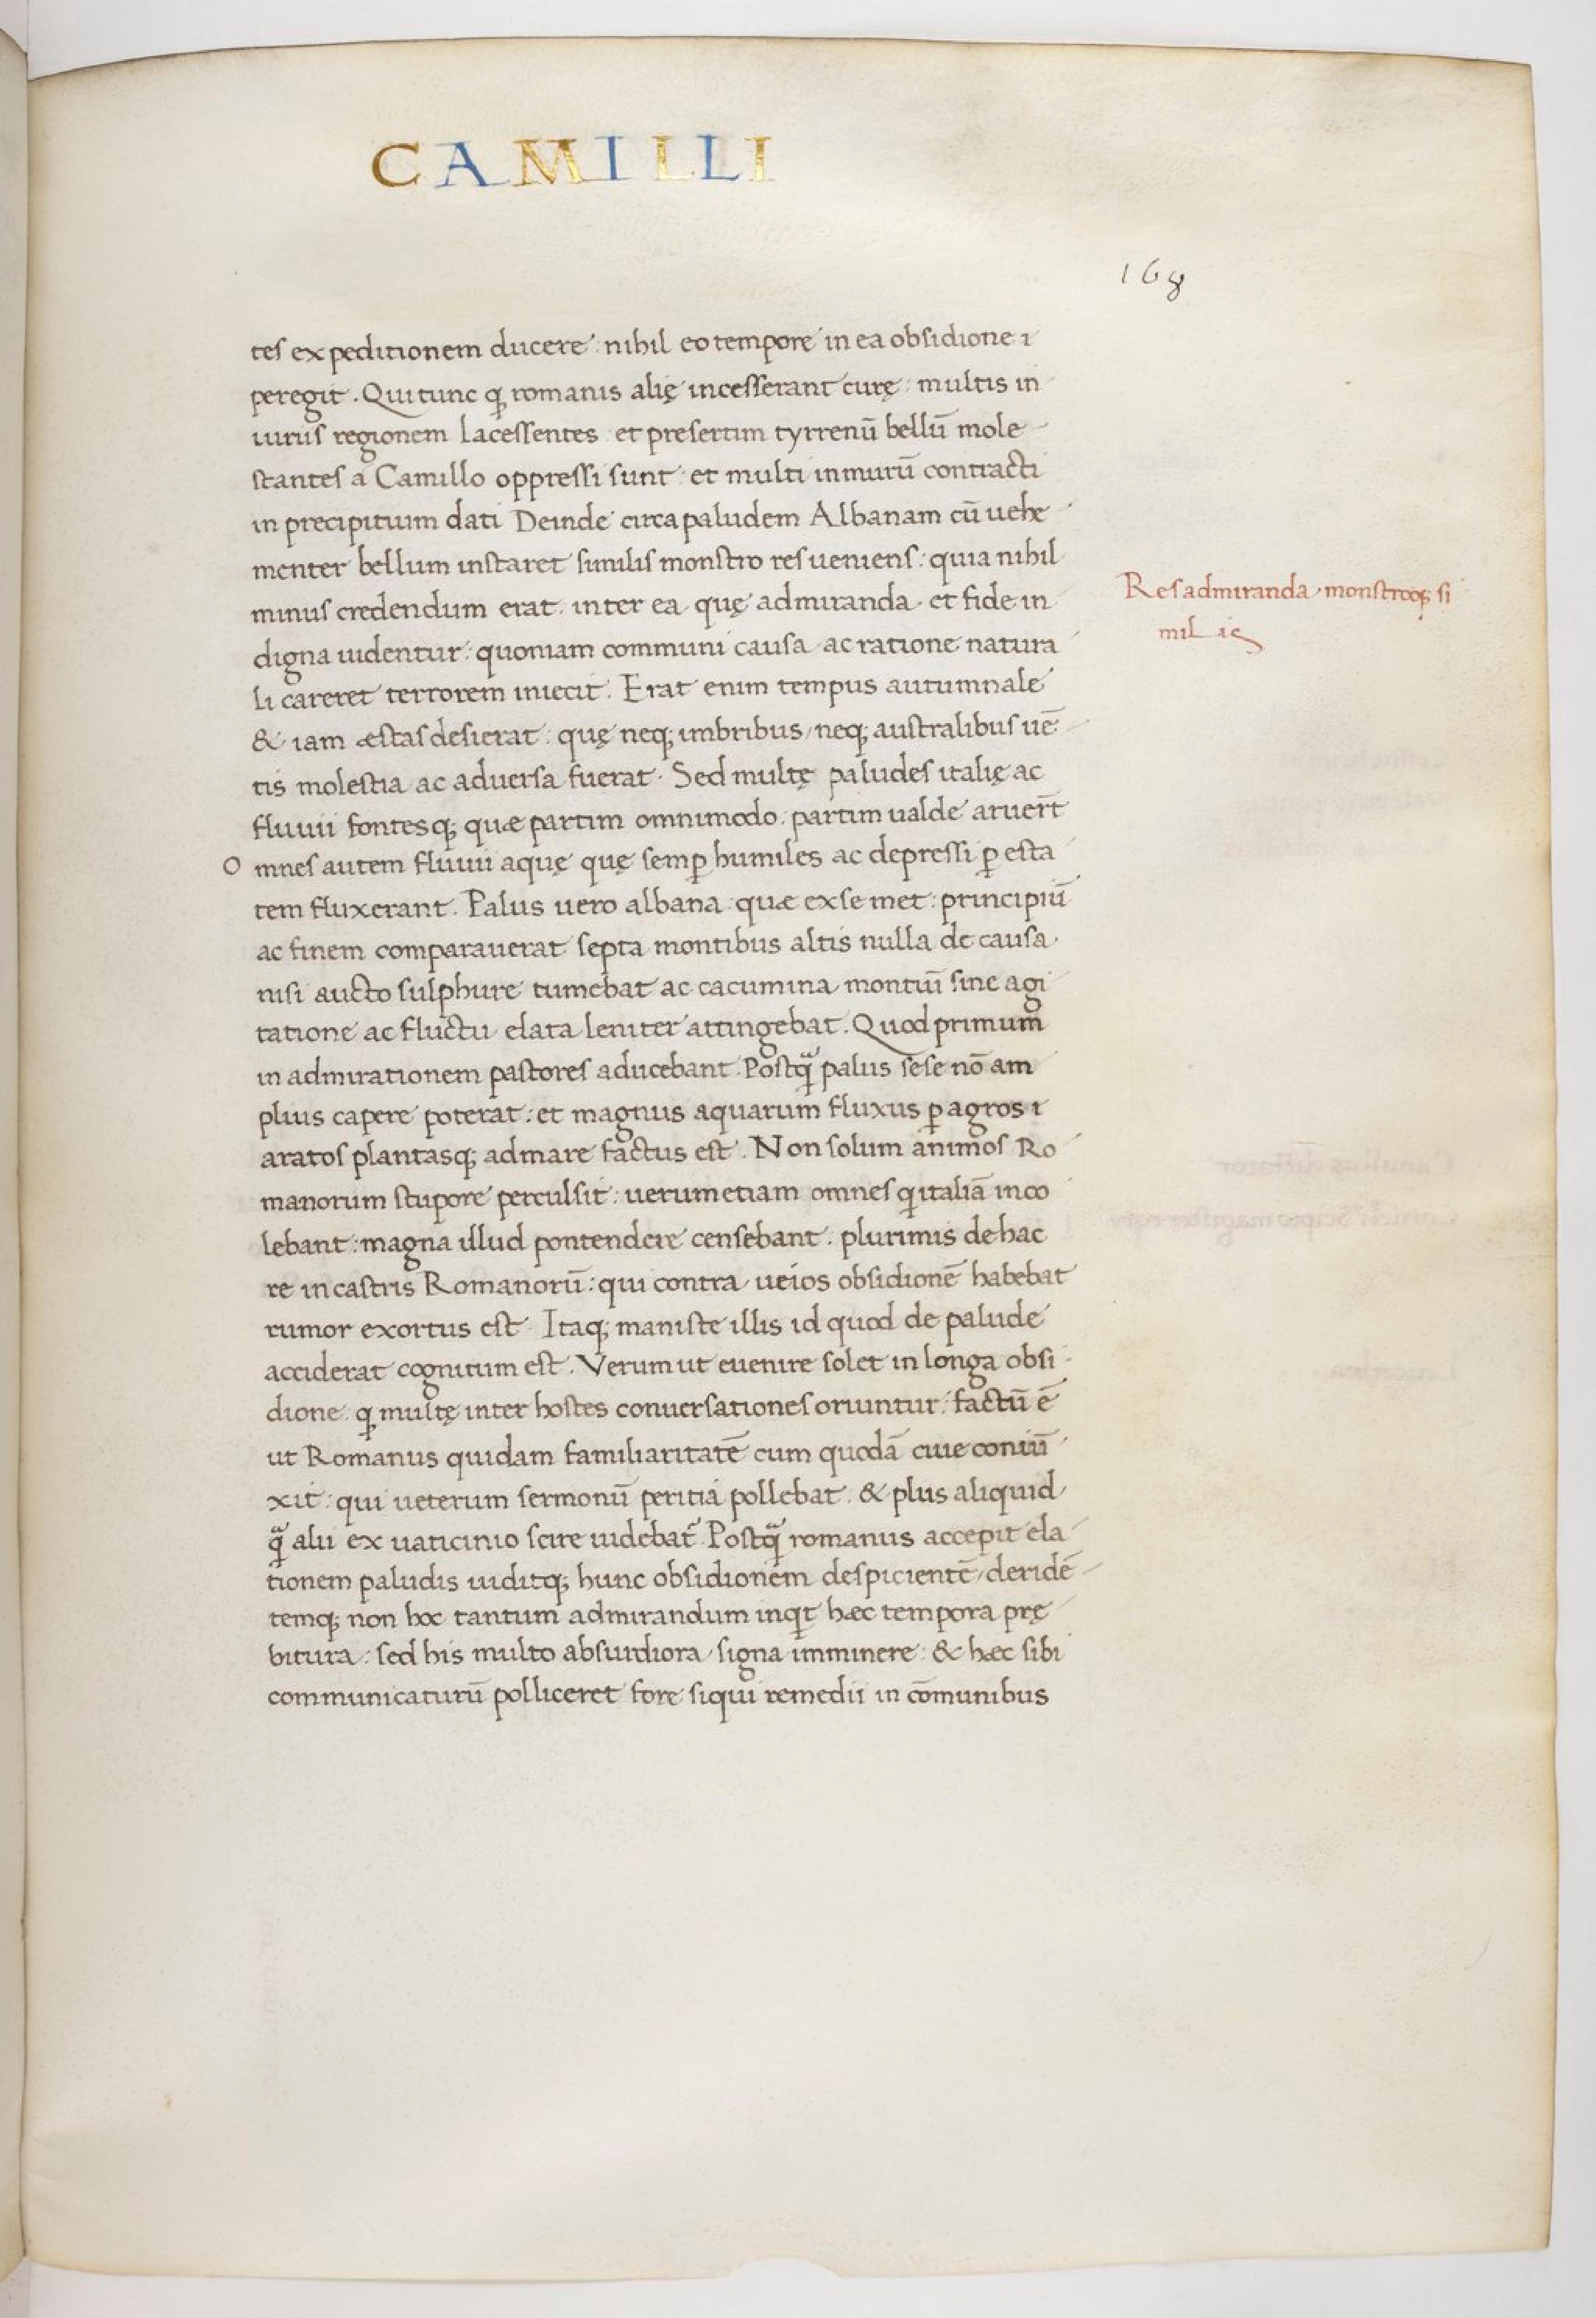 CAMILLI
168
tes expeditionem ducere: nihil eo tempore in ea obsidione ı
peregit. Qui tunc ꝙ romanis alię incesserant curę: multis in
iuriis regionem lacessentes et presertim tyrrenū bellū mole
stantes a Camillo oppressi sunt: et multi in murū contracti
in precipitium dati Deinde circa paludem Albanam cū uehe
menter bellum instaret similis monstro res ueniens: quia nihil
minus credendum erat. inter ea quę admiranda. et fide in
digna uidentur: quoniam communi causa ac ratione natura
li careret terrorem iniecit. Erat enim tempus autumnale
& iam æstas desierat: quę neq; imbribus, neq; australibus uē
tis molestia ac aduersa fuerat. Sed multę paludes italię ac
fluuii fontesq; quæ partim omnimodo. partim ualde aruer̄t
Omnes autem fluuii aquę quę semꝑ humiles ac depressi ꝑ esta
tem fluxerant. Palus uero albana: quæ ex se met: principiū
ac finem comparauerat septa montibus altis nulla de causa
nisi aucto sulphure tumebat ac cacumina montiū sine agi
tatione ac fluctu elata leniter attingebat. Quod primum
in admirationem pastores aducebant. Postꝙ̃ palus sese nō am
plius capere poterat: et magnus aquarum fluxus ꝑ agros ı
aratos plantasq; ad mare factus est. Non solum animos Ro
manorum stupore perculsit: uerum etiam omnes ꝗ italiā inco
lebant: magna illud pontendere censebant. plurimis de hac
re in castris Romanorū: qui contra ueios obsidionē habebat
rumor exortus est. Itaq; maniste illis id quod de palude
acciderat cognitum est. Verum ut euenire solet in longa obsi
dione. ꝙ multę inter hostes conuersationes oriuntur: factū ē
ut Romanus quidam familiaritatē cum quodā ciue coniū
xit: qui ueterum sermonū peritia pollebat. & plus aliquid
ꝙ̃ alii ex uaticinio scire uidebat᷑. Postꝙ̃ romanus accepit ela
tionem paludis uiditq; hunc obsidionem despicientē, deridē
temq; non hoc tantum admirandum inqt hæc tempora prę
bitura: sed his multo absurdiora signa imminere: & hæc sibi
communicaturū polliceret fore siqui remedii in cōmunibus
Res admiranda, monstroq; si
mil